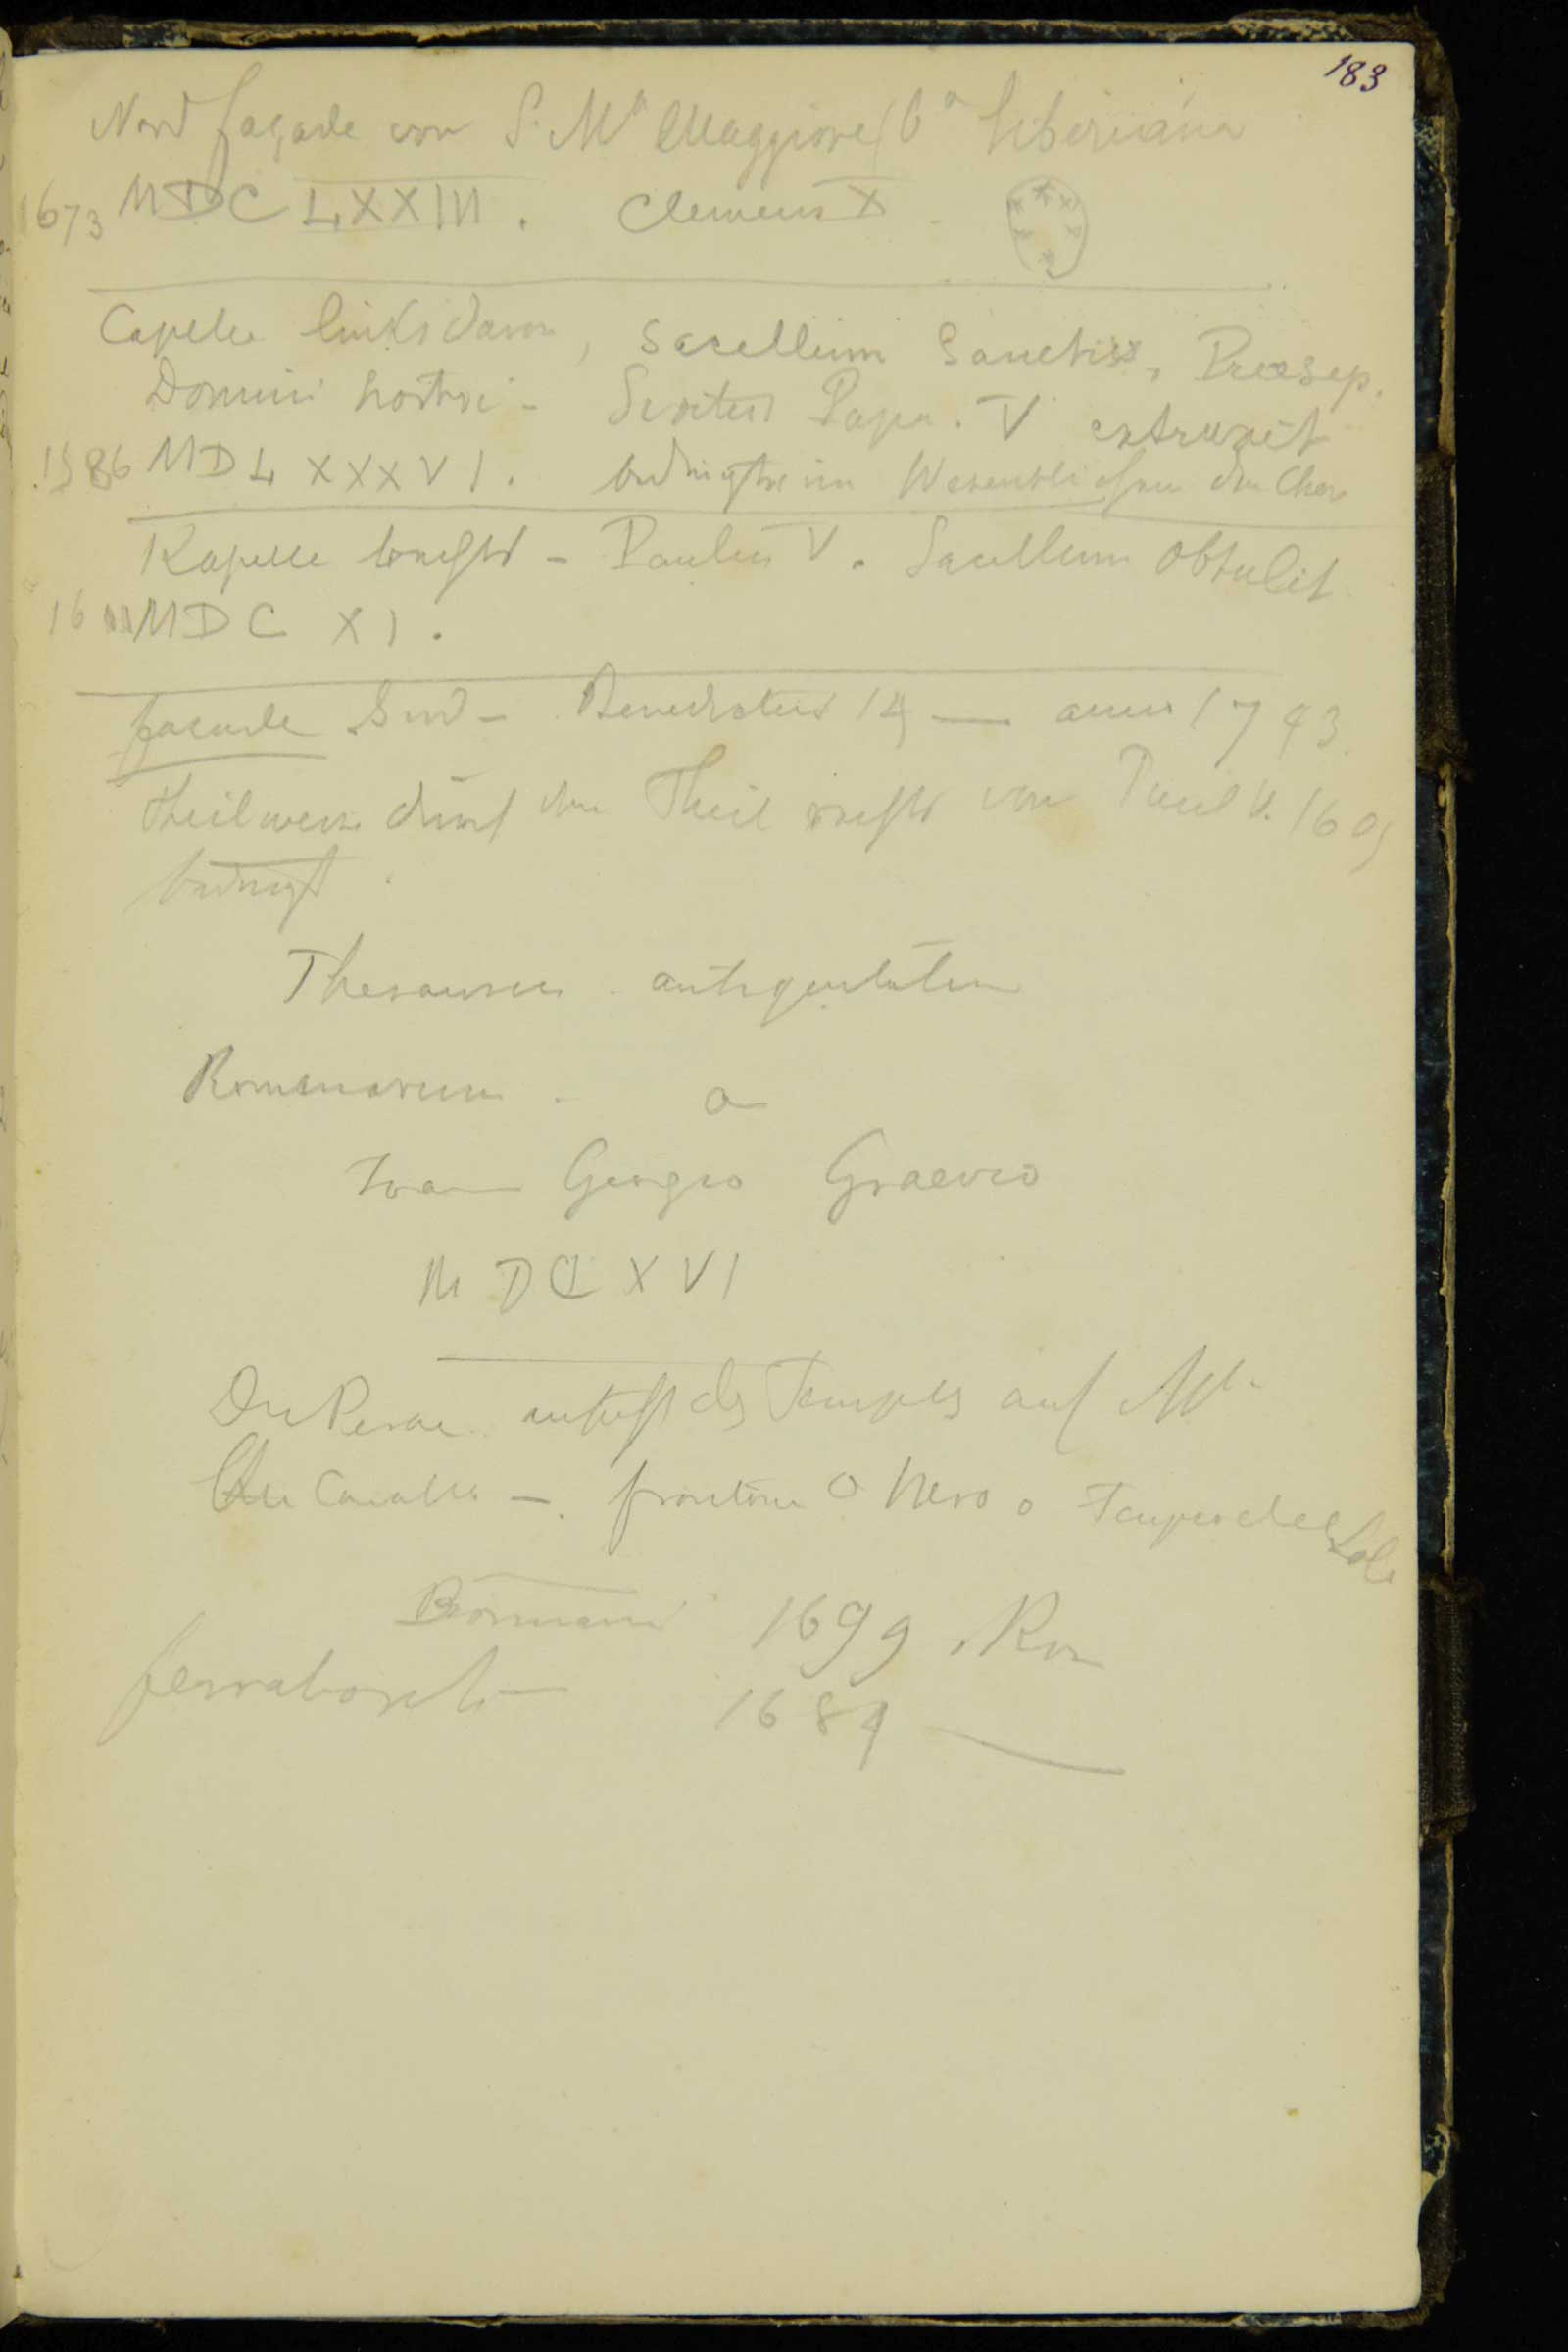 183
Nord façade von S. Mª Maggiore (Bª Liberiana
1673 MDCLXXIII. Clemens X
Capelle links davon, Sacellum Sanctiss, Praesep.
Domini nostri - Sixtus Papa. V extruxit
1586 MDLXXXVI. bedingte im Wesentlichen den Chor
Kapelle rechts - Paulus V. Sacellum obtulit
1611 MDC XI.
façade Sud - Benedictus 14 — anno 1743.
Theilweise durch den Theil rechts von Paul V. 1605
bedingt
Thesaurus antiquitatum
Romanarum - a
Joan Georgio Graevio
MDCXVI
Du Perac ansicht des Tempels auf Mte
Cavallo - frontone o Nero o Tempio del Sole
1699 Rom
Ferrabosch — 1684 —